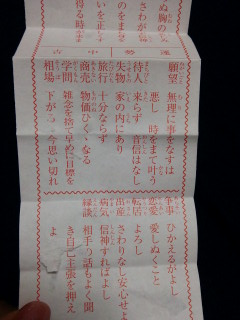 ぬ胸の
さわが
のをま
いを正し
得る時
運勢 中吉
願望 無理に事をなすは
悪し 時をまて叶う
待人 来らず 音信はなし
失物 家の内にあり
旅行 十分ならず
商売 物価ひくくなる
学問 雑念を捨て 目標を
相場 下がる 今思い切れ
争事 ひかえるがよし
恋愛 愛しぬくこと
転居 よろし
出産 さわりなし安心せよ
病気 信神すればよし
縁談 相手 話もよく聞
き自己主張を押え
よ